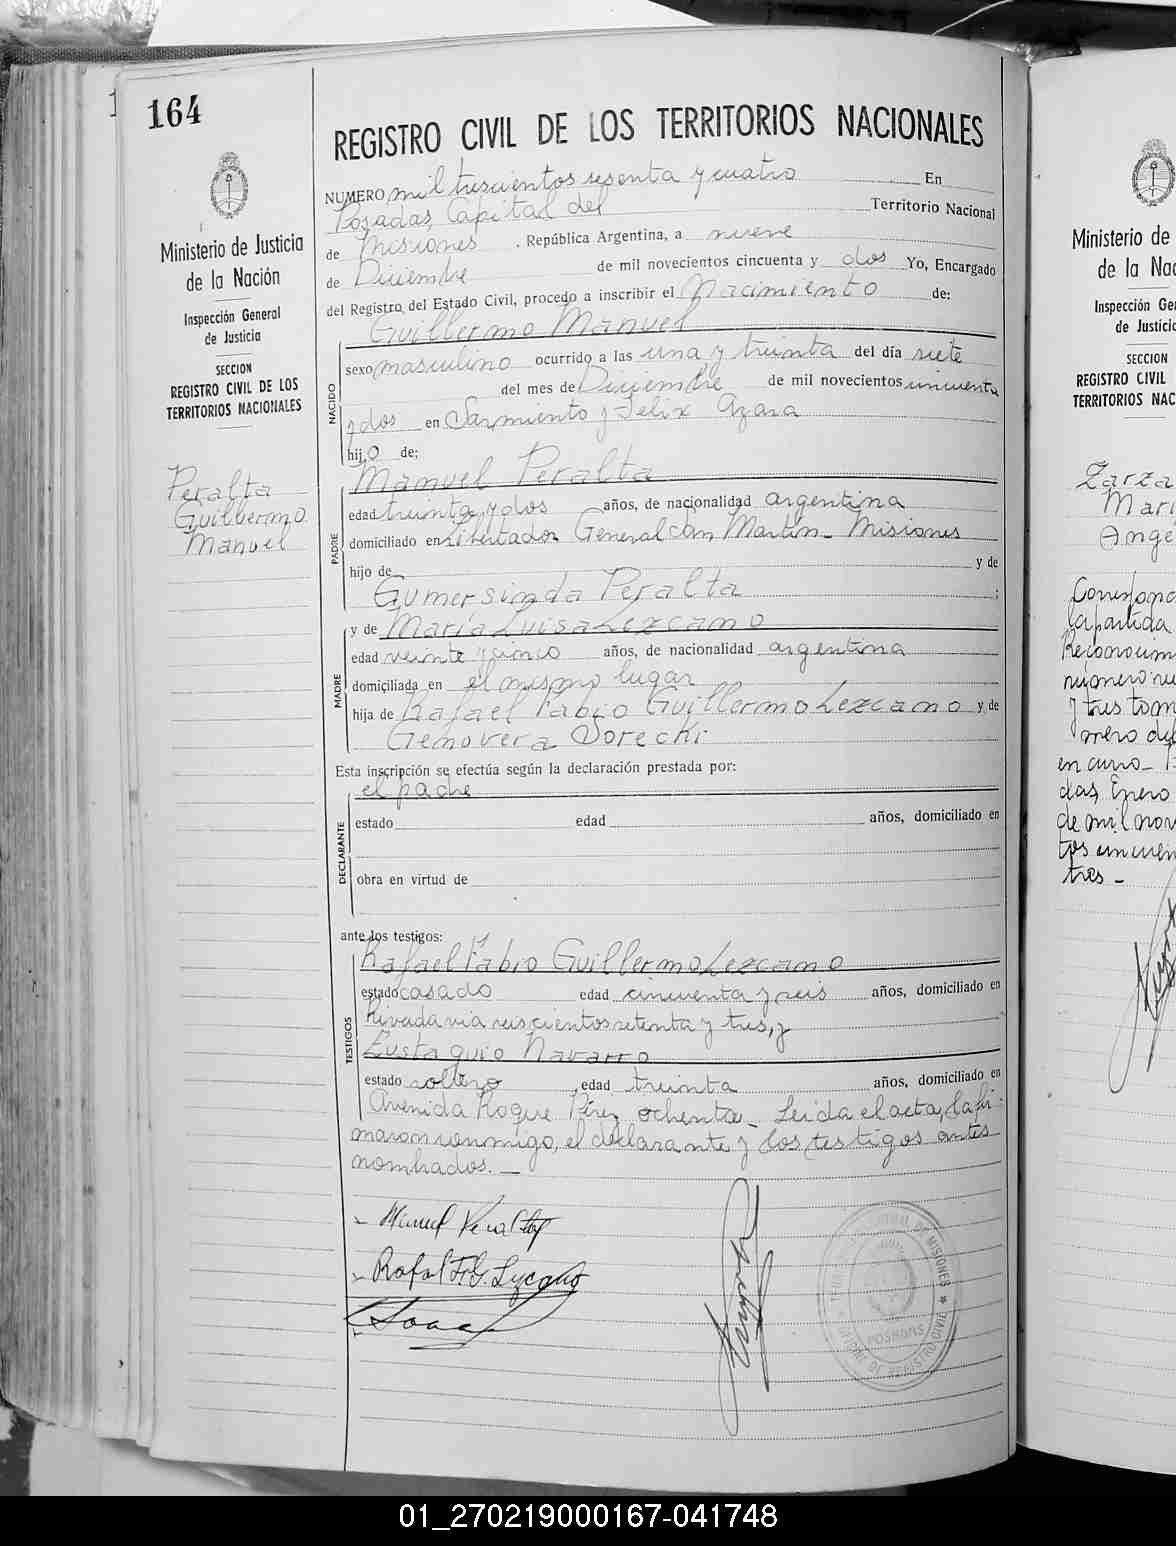 164
REGISTRO CIVIL DE LOS TERRITORIOS NACIONALES
Ministerio de Justicia
de la Nación
Inspección General
de Justicia
SECCION
REGISTRO CIVIL DE LOS
TERRITORIOS NACIONALES
Peralta
Guillermo
Manuel
NUMERO mil trescientos sesenta y cuatro En
Posadas, Capital del Territorio Nacional
de Misiones . República Argentina, a nueve
de Diciembre de mil novecientos cincuenta y dos Yo, Encargado
del Registro del Estado Civil, procedo a inscribir el Nacimiento de:
Guillermo Manuel
NACIDO
sexo masculino ocurrido a las una y treinta del día siete
del mes de Diciembre de mil novecientos cincuenta
y dos en Sarmiento y Felix Azara
hijo de:
Manuel Peralta
PADRE
edad treinta y dos años, de nacionalidad argentina
domiciliado en Libertador General San Martin - Misiones
hijo de y de
Gumersinda Peralta ;
y de María Luisa Lezcano
MADRE
edad veinte y cinco años, de nacionalidad argentina
domiciliada en el mismo lugar
hija de Rafael Fabio Guillermo Lezcano y de
Genovera Dorecki
Esta inscripción se efectúa según la declaración prestada por:
el padre
DECLARANTE
estado edad años, domiciliado en
obra en virtud de
ante los testigos:
Rafael Fabio Guillermo Lezcano
TESTIGOS
estado casado edad cincuenta y seis años, domiciliado en
Rivadavia seiscientos setenta y tres, y
Eustaquio Navarro
estado soltero edad treinta años, domiciliado en
Avenida Roque Pérez ochenta - Leida el acta, la fir-
maron conmigo, el declarante y los testigos antes
nombrados. -
Manuel Peralta
Rafael F.G. Lezcano
POSADAS
DE MISIONES
DE REGISTRO CIVIL
Ministerio de
de la Nac
Inspección Ge
de Justici
SECCION
REGISTRO CIVIL
TERRITORIOS NAC
Zarza
Mari
Ange
Corresponde
la partida
Reconocim
número nu
y tres tom
mero de
en curso - P
das, Enero
de mil nov
tos cincuen
tres -
01_270219000167-041748